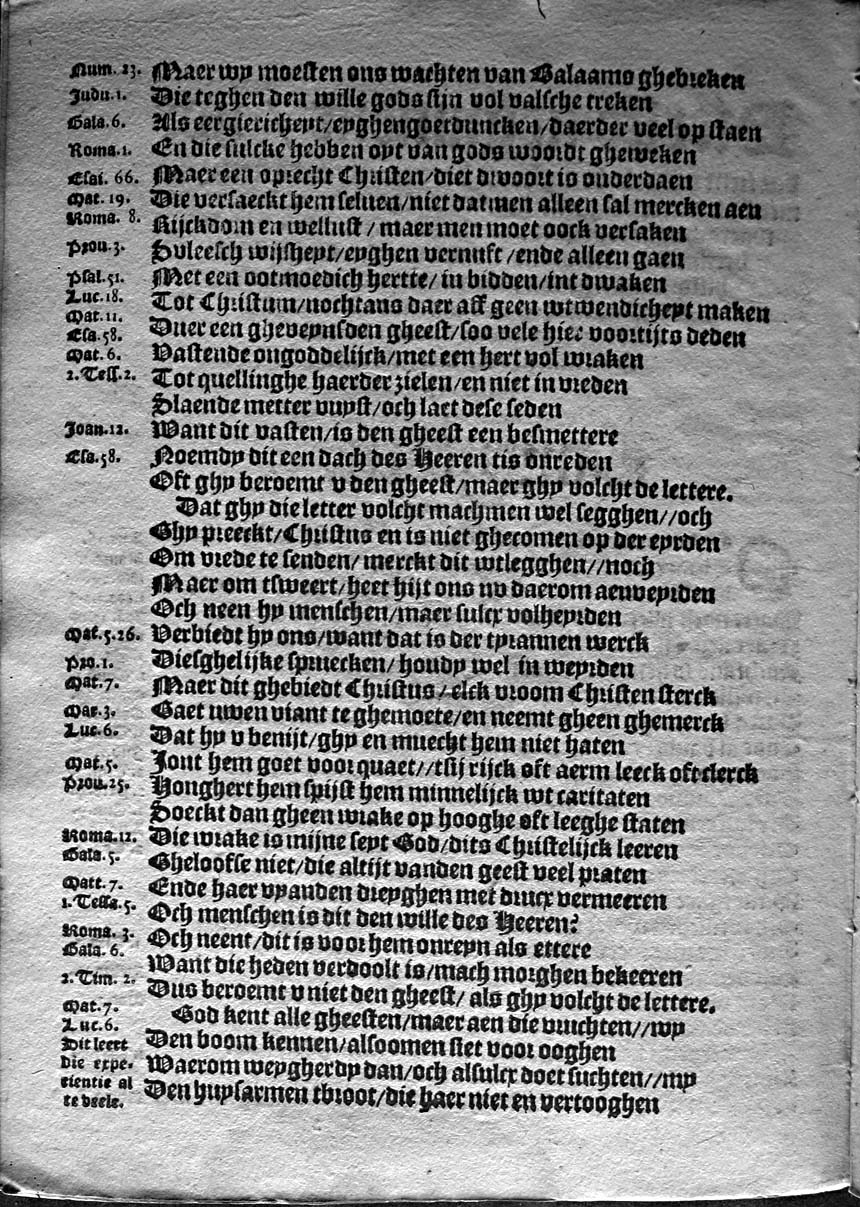 Num. 23. Maer wy moesten ons wachten van Balaams ghebreken
Judu. 1. Die teghen den wille gods sijn vol valsche treken
Gala. 6. Als eergiericheyt/eyghengoetduncken/daerder veel op staen
Roma. 1. En die sulcke hebben oyt van gods woordt gheweken
Esai. 66. Maer een oprecht Christen/diet dwoort is onderdaen
Mat. 19. Die versaeckt hem seluen/niet datmen alleen sal mercken aen
Roma. 8. Rijckdom en wellust/maer men moet oock versaken
Prou. 3. Svleesch wijsheyt/eyghen vernuft/ende alleen gaen
Psal. 51. Met een ootmoedich hertte/in bidden/int dwaken
Luc. 18. Tot Christum/nochtans daer aff geen wtwendicheyt maken
Mat. 11.
Esa. 58. Duer een gheveynsden gheest/soo vele hier voortijts deden
Mat. 6. Vastende ongoddelijck/met een hert vol wraken
2. Tess. 2. Tot quellinghe haerder zielen/en niet in vreden
Slaende metter vuyst/och laet dese seden
Joan. 12. Want dit vasten/is den gheest een besmettere
Esa. 58. Noemdy dit een dach des Heeren tis onreden
Oft ghy beroemt v den gheest/maer ghy volcht de lettere.
Dat ghy die letter volcht machmen wel segghen//och
Ghy preeckt/Christus en is niet ghecomen op der eyrden
Om vrede te senden/merckt dit wtlegghen//noch
Maer om tsweert/heet hijt ons nv daerom aenveyrden
Och neen hy menschen/maer sulcx volheyrden
Mat. 5. 26. Verbiedt hy ons/want dat is der tyrannen werck
Pro. 1. Diesghelijke spruecken/houdy wel in weyrden
Mat. 7. Maer dit ghebiedt Christus/elck vroom Christen sterck
Mar. 3. Gaet uwen viant te ghemoete/en neemt gheen ghemerck
Luc. 6. Dat hy v benijt/ghy en muecht hem niet haten
Mat. 5. Jont hem goet voor quaet//tsij rijck oft aerm leeck oft clerck
Prou. 25. Honghert hem spijst hem minnelijck wt caritaten
Soeckt dan gheen wrake op hooghe oft leeghe staten
Roma. 12. Die wrake is mijne seyt God/dits Christelijck leeren
Gala. 5. Gheloofse niet/die altijt vanden geest veel praten
Matt. 7. Ende haer vyanden dreyghen met drucx vermeeren
1. Tessa. 5. Och menschen is dit den wille des Heeren?
Roma. 3. Och neent/dit is voor hem onreyn als ettere
Gala. 6. Want die heden verdoolt is/mach morghen bekeeren
2. Tim. 2. Dus beroemt v niet den gheest/als ghy volcht de lettere.
Mat. 7. God kent alle gheesten/maer aen die vruchten//wy
Luc. 6. Den boom kennen/alsoomen siet voor ooghen
Dit leert
die expe- Waerom weygherdy dan/och alsulcx doet suchten//my
rientie al Den huysarmen tbroot/die haer niet en vertooghen
te veele.